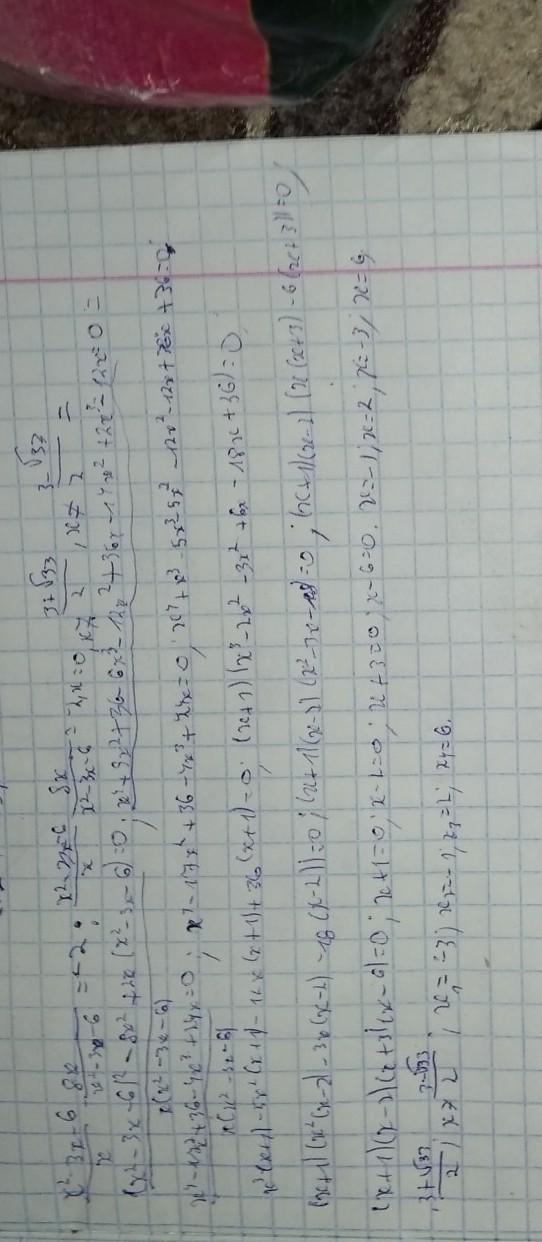 (x²-3x-6)/x - 8x/(x²-3x-6) = -2; (x²-3x-6)/x - 8x/(x²-3x-6) = -2, x=0, x≠ (3+√33)/2, x≠ (3-√37)/2 =
((x²-3x-6)²-8x²+2x(x²-3x-6))/(x(x²-3x-6)) = 0; x⁴+9x²+36-6x³-12x²+36x-14x²+2x³-12x=0 =
(x⁴-17x²+36-4x³+24x)/(x(x²-3x-6)) = 0; x⁴-17x²+36-4x³+24x=0; x⁴+x³-5x³-5x²-12x²-12x+36x+36=0;
x³(x+1)-5x²(x+1)-12x(x+1)+36(x+1)=0; (x+1)(x³-2x²-3x²+6x-18x+36)=0;
(x+1)(x²(x-2)-3x(x-2)-18(x-2))=0; (x+1)(x-2)(x²-3x-18)=0; (x+1)(x-2)(x(x+3)-6(x+3))=0;
(x+1)(x-2)(x+3)(x-6)=0; x+1=0; x-2=0; x+3=0; x-6=0. x=-1; x=2; x=-3; x=6,
(3+√37)/2; x≠ (3-√33)/2; x₁=-3; x₂=-1; x₃=2; x₄=6.